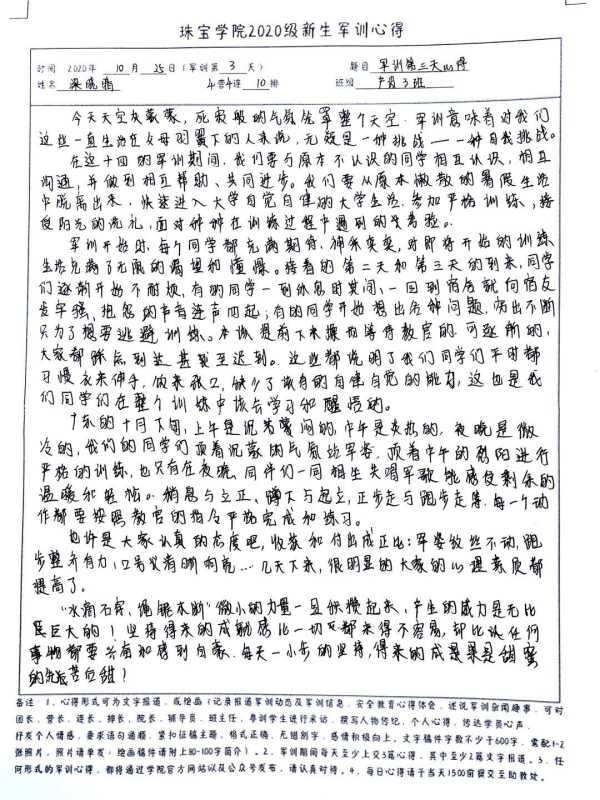 珠宝学院2020级新生军训心得
时间 2020年 10月 25日（军训第 3 天） 题目 军训第三天心得
姓名 梁晓晴 4营4连 10排 班级 产品3班
今天天空灰蒙蒙，死寂般的气氛笼罩整个天空。军训意味着对我们
这些一直生活在父母羽翼下的人来说，无疑是一种挑战——一种自我挑战。
在这十四的军训期间，我们要与原本不认识的同学相互认识，相互
沟通，并做到相互帮助、共同进步。我们要从原本懒散的暑假生活
中脱离出来，快速进入大学自觉自律的大学生活，参加严格训练，接
受阳光的洗礼，面对种种在训练过程中遇到的考验。
军训开始时，每个同学都充满期待，神采奕奕，对即将开始的训练
生活充满了无限的渴望和憧憬。接着的第二天和第三天的到来，同学
们逐渐开始不耐烦，有的同学一到休息时间，一回到宿舍就向宿友
发牢骚，抱怨的声音连声四起；有的同学开始想出各种问题，病出不断
只为了想要逃避训练。本该提前下来操场等待教官的，可逐渐的，
大家都踩点到达甚至迟到。这些都说明了我们同学们平时都
习惯衣来伸手，饭来张口，缺少了该有的自律自觉的能力，这也是我
们同学们在整个训练中该去学习和醒悟的。
广东的十月下旬，上午是沉若蒙闷的，中午是炎热的，夜晚是微
冷的，我们的同学们顶着沉蒙的气氛站军姿，顶着中午的烈阳进行
严格的训练，也只有在夜晚，同伴们一同相坐失唱军歌能感受剩余的
温暖和轻松。稍息与立正，蹲下与起立，正步走与跑步走等，每一个动
作都要按照教官的指令严格完成和练习。
也许是大家认真的态度吧，收获和付出成正比：军姿纹丝不动，跑
步整齐有力，口号义清晰响亮……几天下来，很明显的大家的心理素质都
提高了。
“水滴石穿，绳锯木断”微小的力量一旦积攒起来，产生的威力是无比
巨大的！坚持得来的成就感比一切都来得不容易，却比认任何
事物都要兴奋和感到自豪。每天一小步的坚持，得来的成是果是甜蜜
的先苦后甜！
备注：1、心得形式可为文字报道，或绘画（记录报道军训动态及军训信息，安全教育心得体会，述说军训杂闻趣事，可对
团长、营长、连长、排长、院长、辅导员、班主任、参训学生进行采访，撰写人物传记，个人心得，传达学员心声，
抒发个人情感，要求语句通顺，紧扣征稿主题，格式正确，无错别字，感情积极向上，文字稿件字数不少于600字，需配1-2
张照片，照片请单发；绘画稿件请附上80-100字简介）。2、军训期间每天至少上交3篇心得，其中至少2篇文字报道。3、任
何形式的军训心得，都将通过学院官方网站以及公众号发布，请认真对待。4、每日心得请于当天1500前提交至助教处。